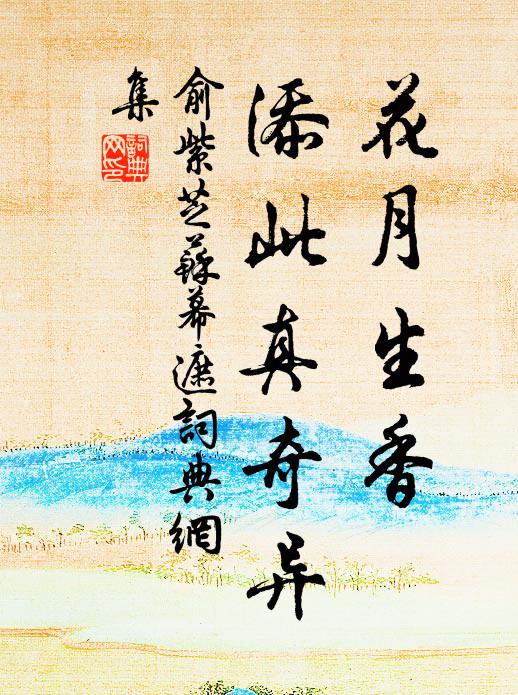 花月生香
添此真奇异
俞紫芝蘇幕遮詞典網
集
詞典
网印